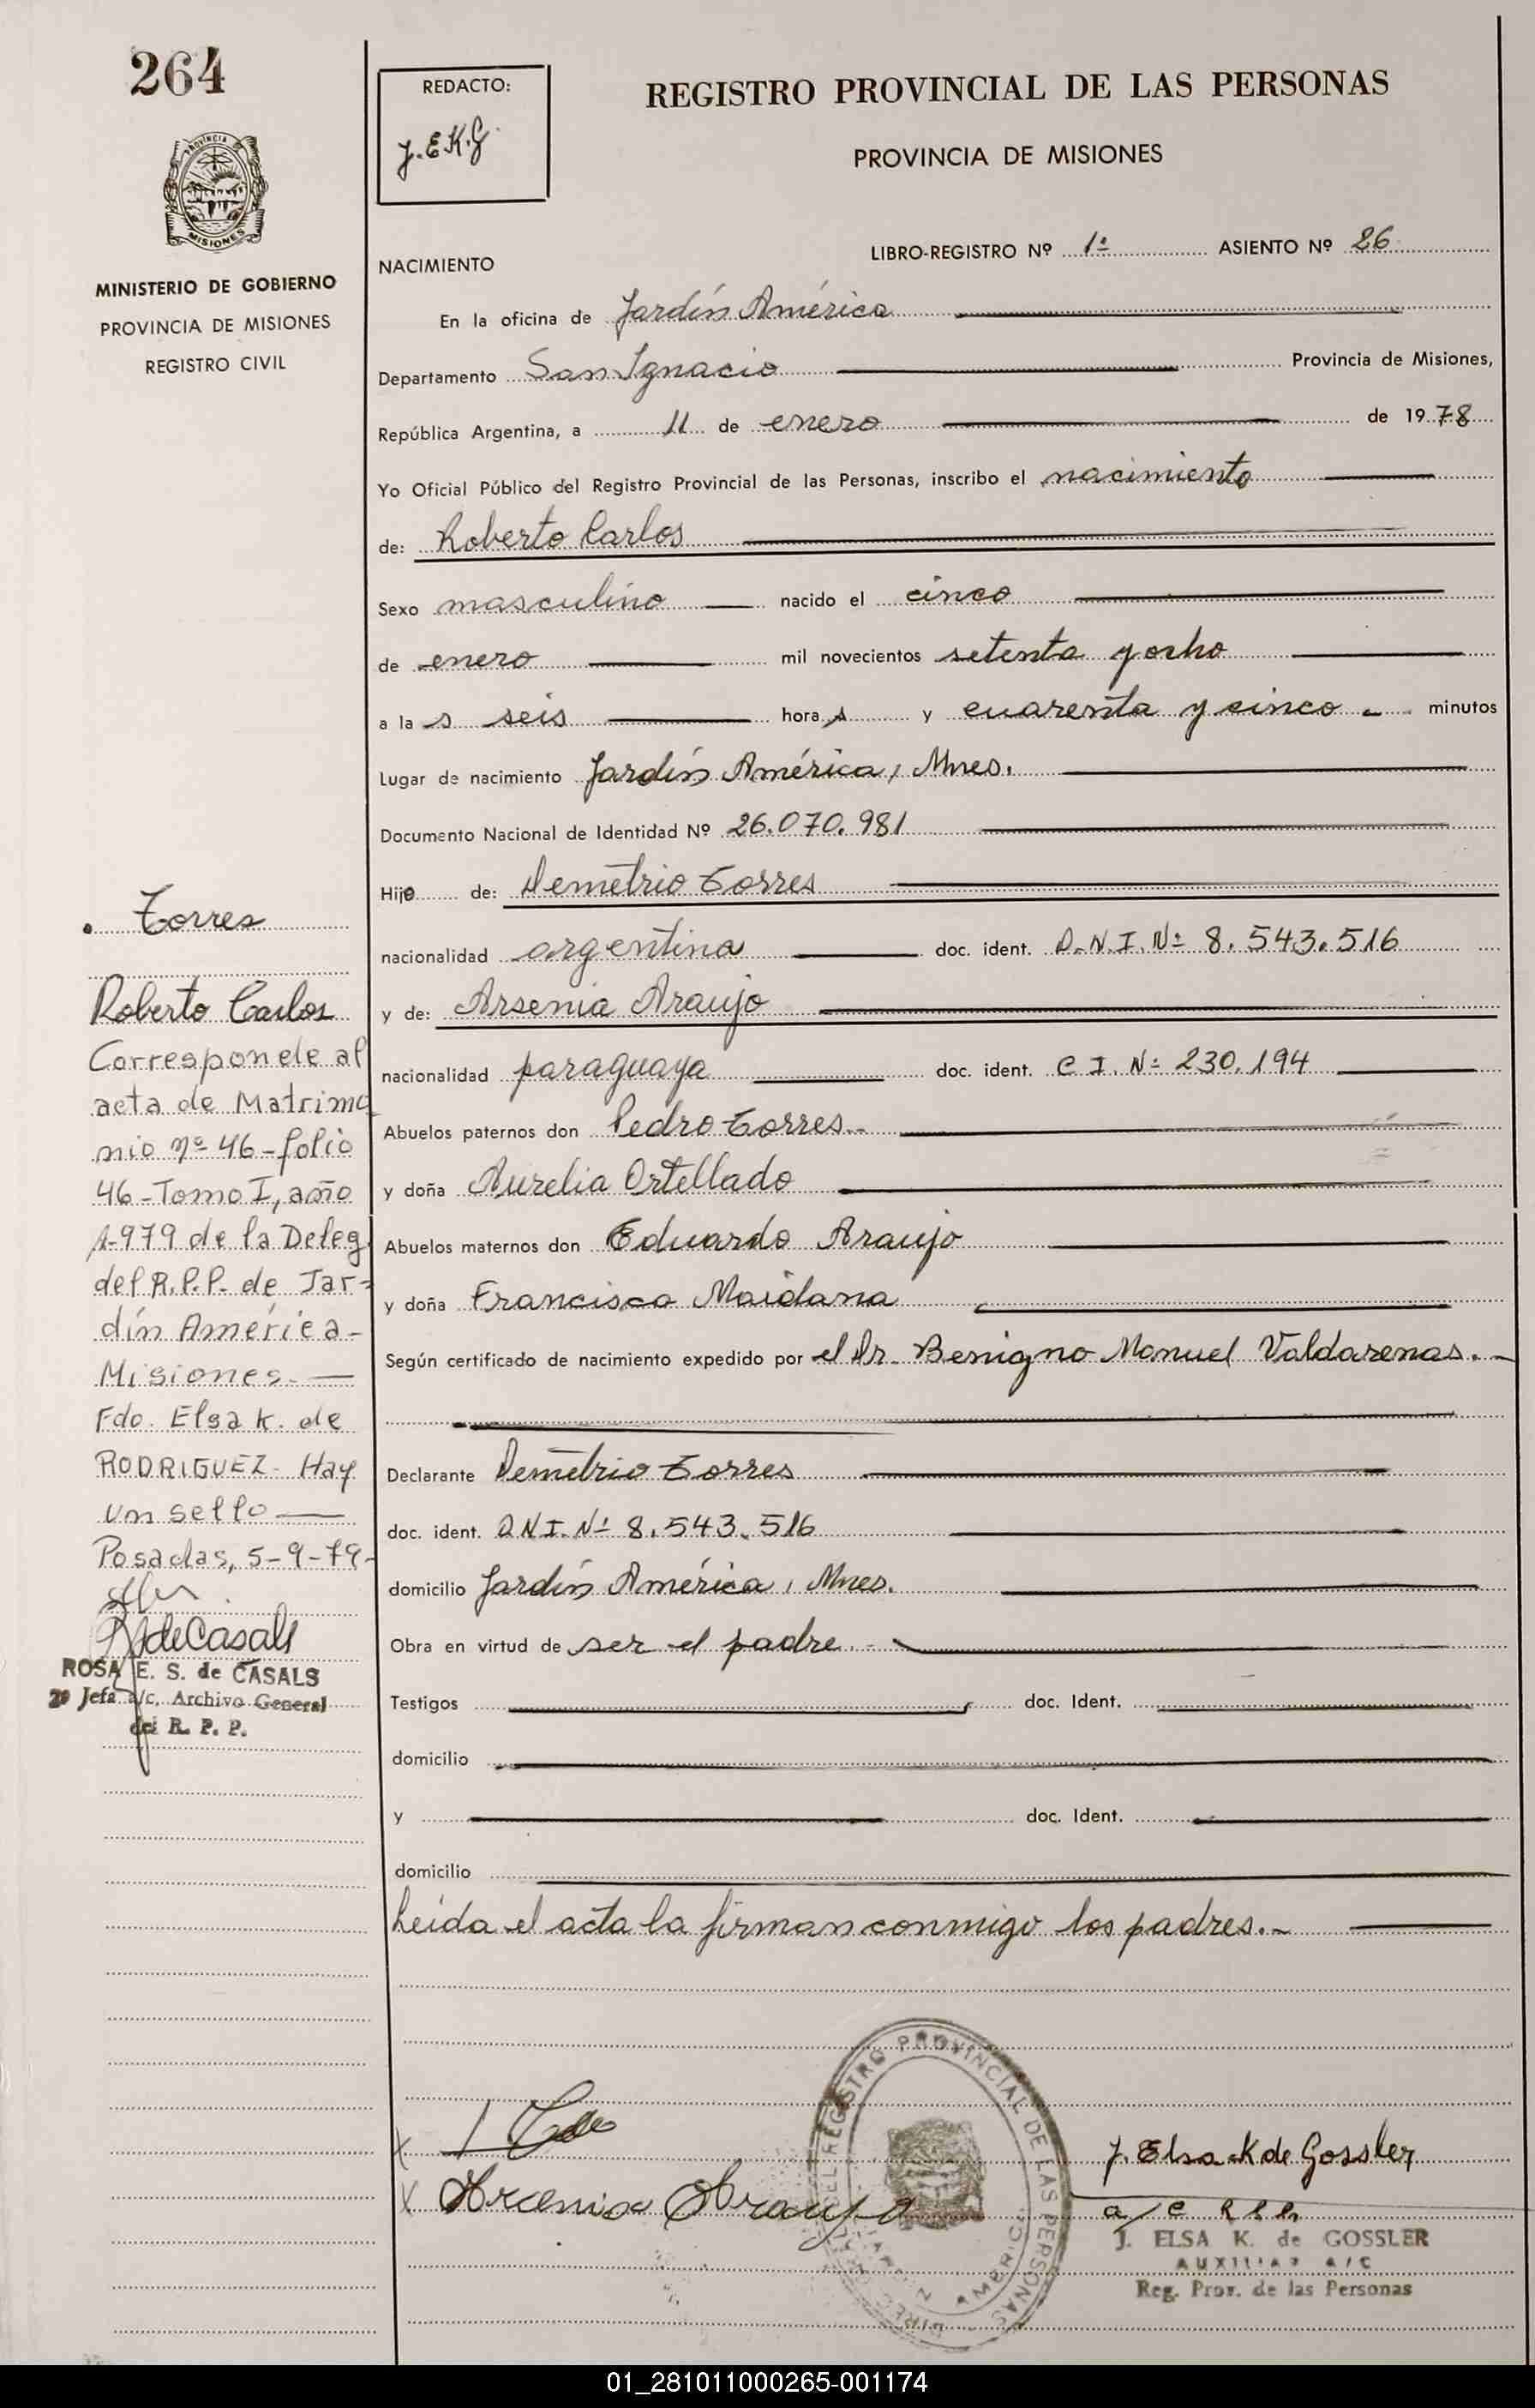 264
REDACTO:
J.E.K.G.
REGISTRO PROVINCIAL DE LAS PERSONAS
PROVINCIA DE MISIONES
PROVINCIA
MISIONES
MINISTERIO DE GOBIERNO
PROVINCIA DE MISIONES
REGISTRO CIVIL
NACIMIENTO
LIBRO-REGISTRO Nº 1º ASIENTO Nº 26
En la oficina de Jardín América
Departamento San Ignacio Provincia de Misiones,
República Argentina, a 11 de enero de 1978
Yo Oficial Público del Registro Provincial de las Personas, inscribo el nacimiento
de: Roberto Carlos
Sexo masculino nacido el cinco
de enero mil novecientos setenta y ocho
a la s seis hora s y cuarenta y cinco minutos
Lugar de nacimiento Jardín América, Mnes.
Documento Nacional de Identidad Nº 26.070.981
Hijo de: Demetrio Torres
nacionalidad argentina doc. ident. D.N.I. Nº 8.543.516
y de: Arsenia Araujo
nacionalidad paraguaya doc. ident. C I. Nº 230.194
Abuelos paternos don Pedro Torres.-
y doña Aurelia Ortellado
Abuelos maternos don Eduardo Araujo
y doña Francisca Maidana
Según certificado de nacimiento expedido por el Dr. Benigno Manuel Valdarenas.-
Declarante Demetrio Torres
doc. ident. D N I. Nº 8.543.516
domicilio Jardín América, Mnes.
Obra en virtud de ser el padre.-
Testigos doc. Ident.
domicilio
y doc. Ident.
domicilio
Leída el acta la firman conmigo los padres.-
Torres
Roberto Carlos
Corresponde al
acta de Matrimo
nio nº 46-folio
46-Tomo I, año
1.979 de la Deleg
del R.P.P. de Jar-
dín América-
Misiones.-
Fdo. Elsa K. de
RODRIGUEZ. Hay
un sello
Posadas, 5-9-79-
R S de Casals
ROSA E. S. de CASALS
2ª Jefa a/c. Archivo General
del R. P. P.
X
X Arcenia Araujo
REGISTRO PROVINCIAL DE LAS PERSONAS
AMERICA
J. Elsa K de Gossler
a/c R P P
J. ELSA K. de GOSSLER
AUXILIAR A/C
Reg. Prov. de las Personas
01_281011000265-001174